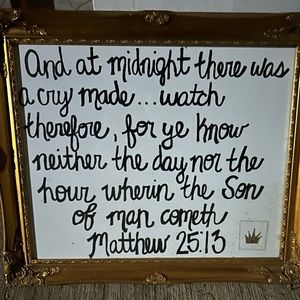 And at midnight there was
a cry made...watch
therefore, for ye know
neither the day nor the
hour, wherin the Son
of man cometh
Matthew 25:13